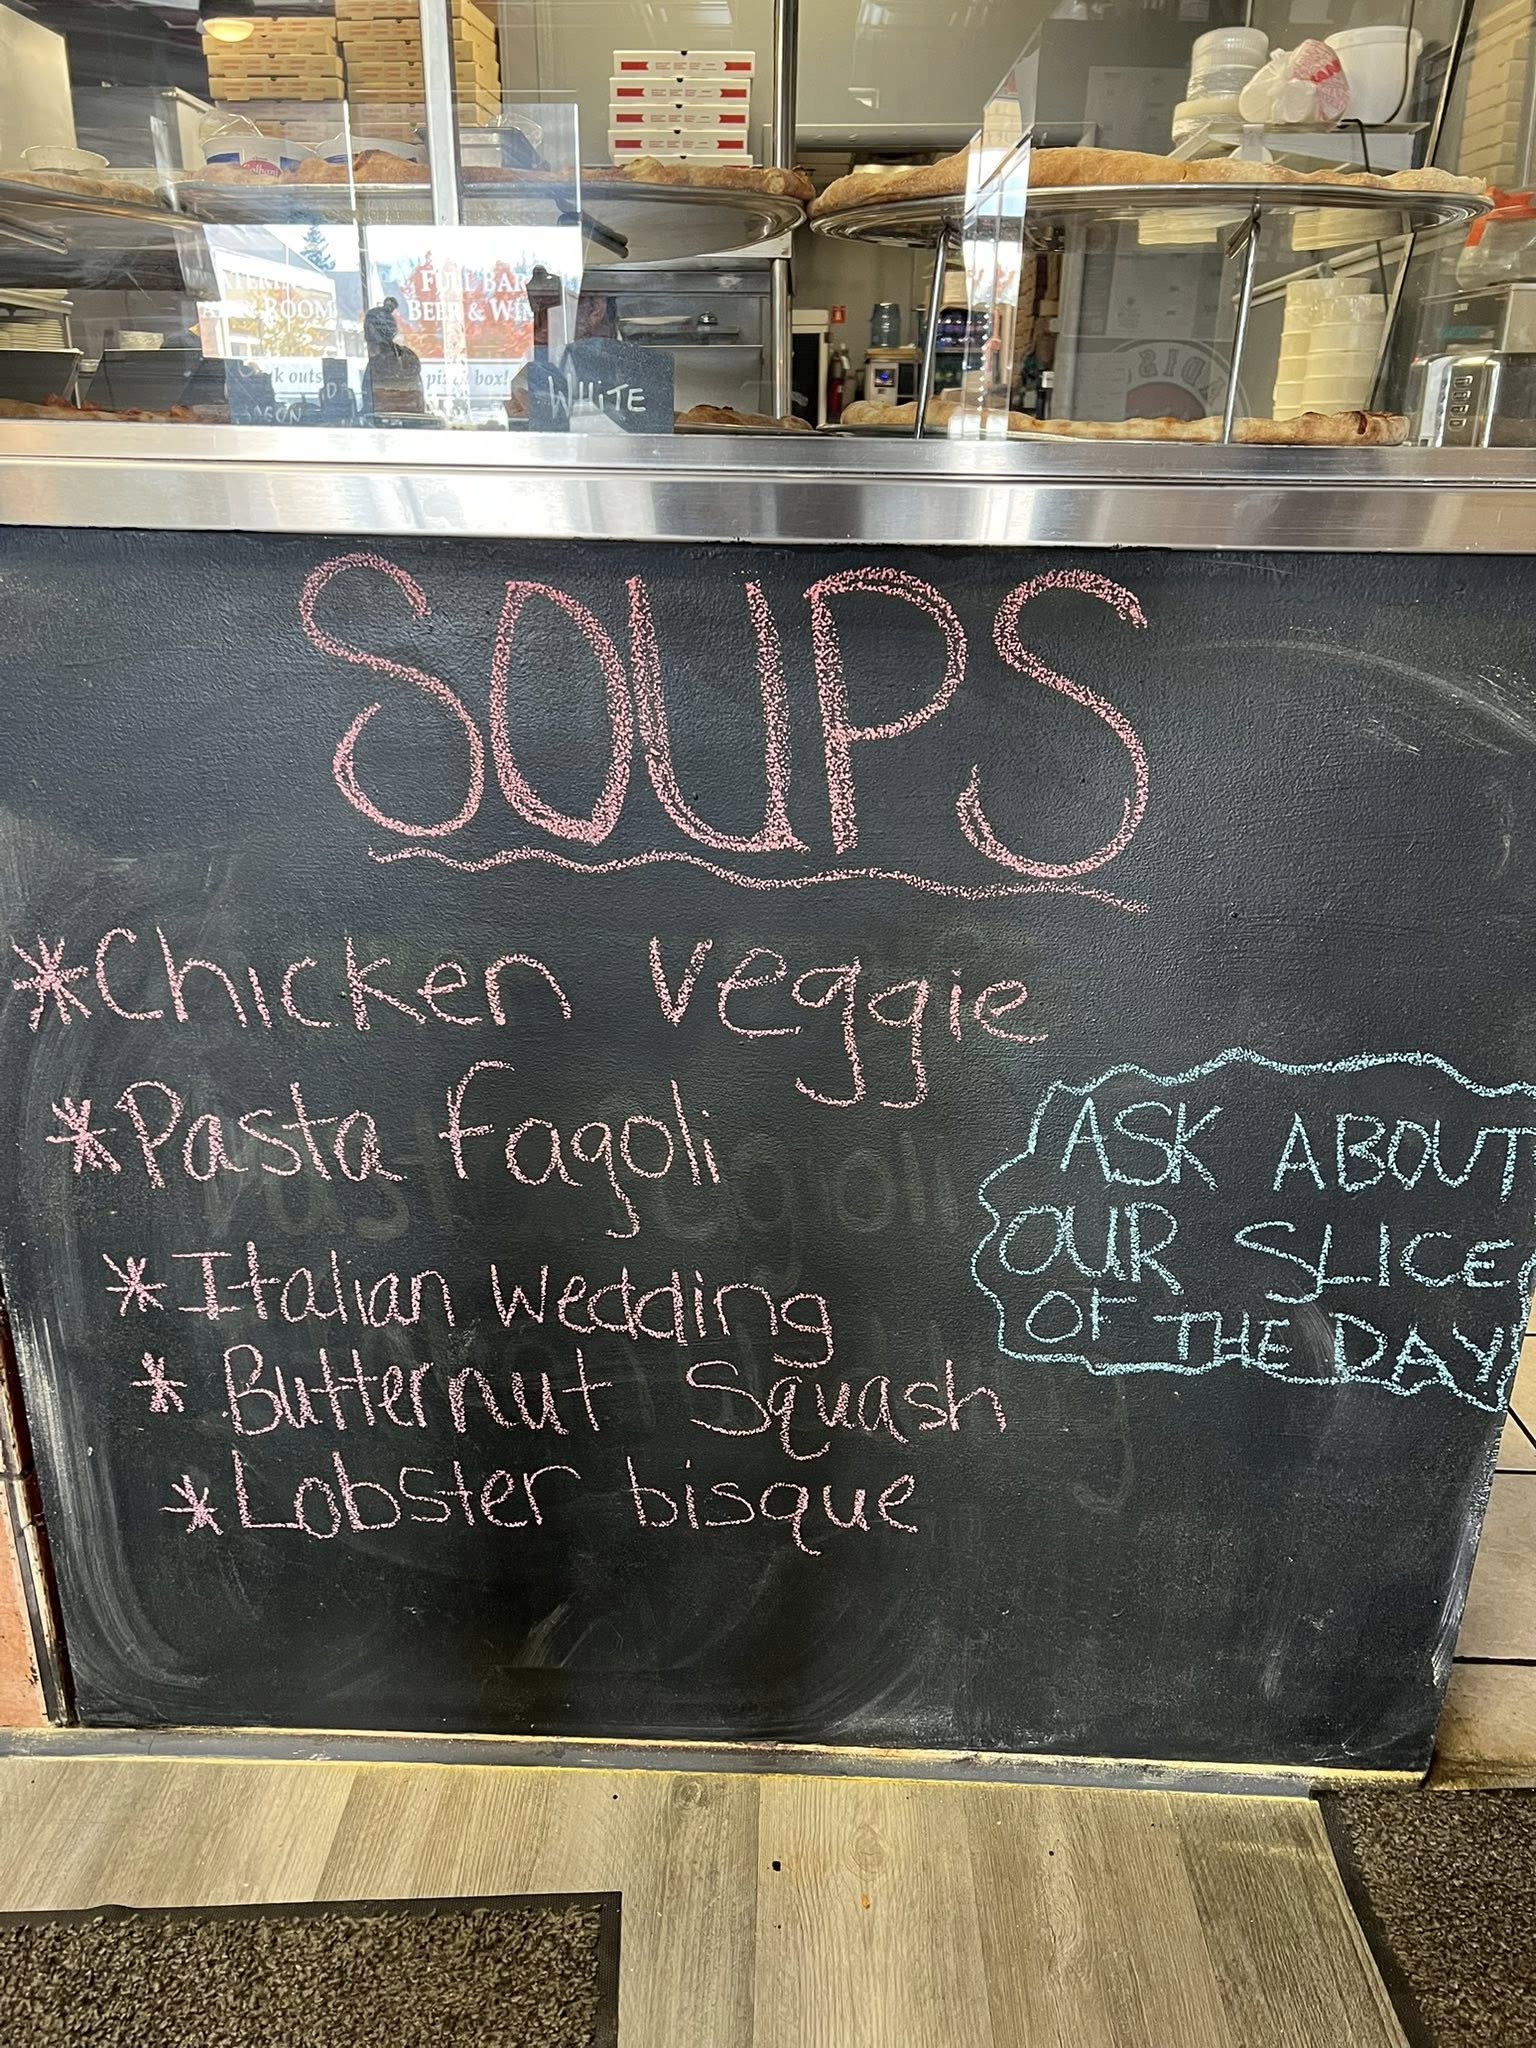 FULL BAR
BEER & WI
WHITE
SOUPS
*Chicken Veggie
*Pasta fagoli
*Italian Wedding
* Butternut Squash
*Lobster bisque
ASK ABOUT
OUR SLICE
OF THE DAY!